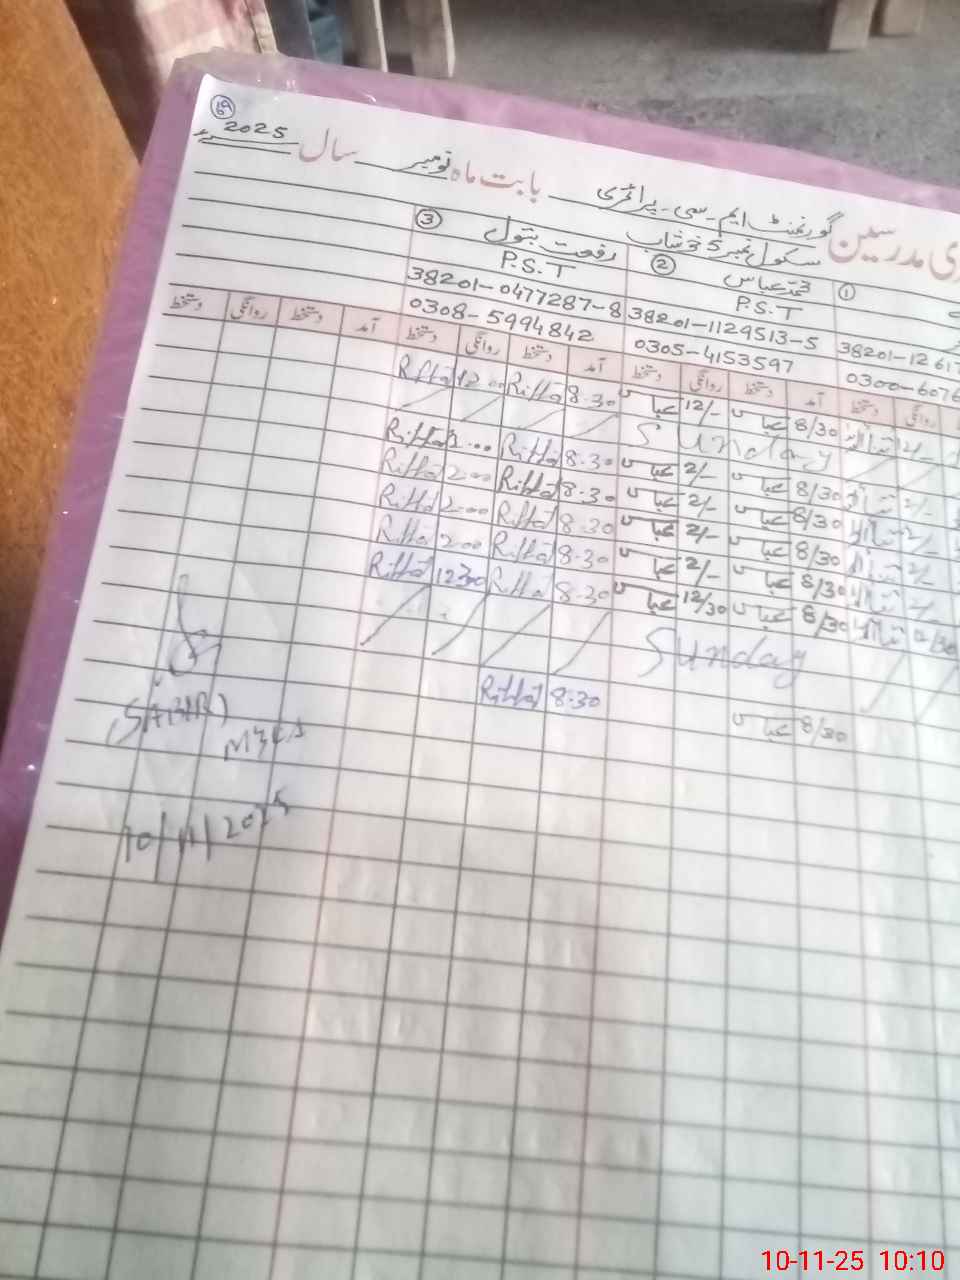 ۱۹
ری مدرسین گورنمنٹ ایم۔سی۔پرائمری بابت ماہ نومبر سال 2025ء
سکول نمبر 5 خوشاب
① ② ③
محمد عباس رفعت بتول
P.S.T P.S.T
38201-1261 38201-1129513-5 38201-0477287-8
0300-6076 0305-4153597 0308-5994842
روانگی دستخط آمد دستخط روانگی دستخط آمد دستخط روانگی دستخط آمد دستخط روانگی دستخط
12/- 8/30 عباس 12/- عباس 8.30 Riffat 12.00 Riffat
Sunday
2/- 8/30 عباس 2/- عباس 8.30 Riffat 2.00 Riffat
2/- 8/30 عباس 2/- عباس 8.30 Riffat 2.00 Riffat
2/- 8/30 عباس 2/- عباس 8.30 Riffat 2.00 Riffat
2/- 8/30 عباس 2/- عباس 8.30 Riffat 2.00 Riffat
12/30 8/30 عباس 12/30 عباس 8.30 Riffat 12.30 Riffat
Sunday
8/30 عباس 8.30 Riffat
(SABIR)
10/11/2025
10-11-25 10:10